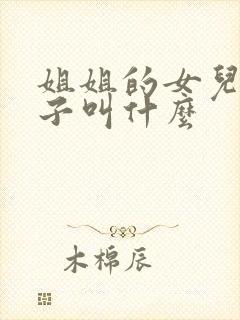 姐姐的女兒
子叫什麼
木棉辰